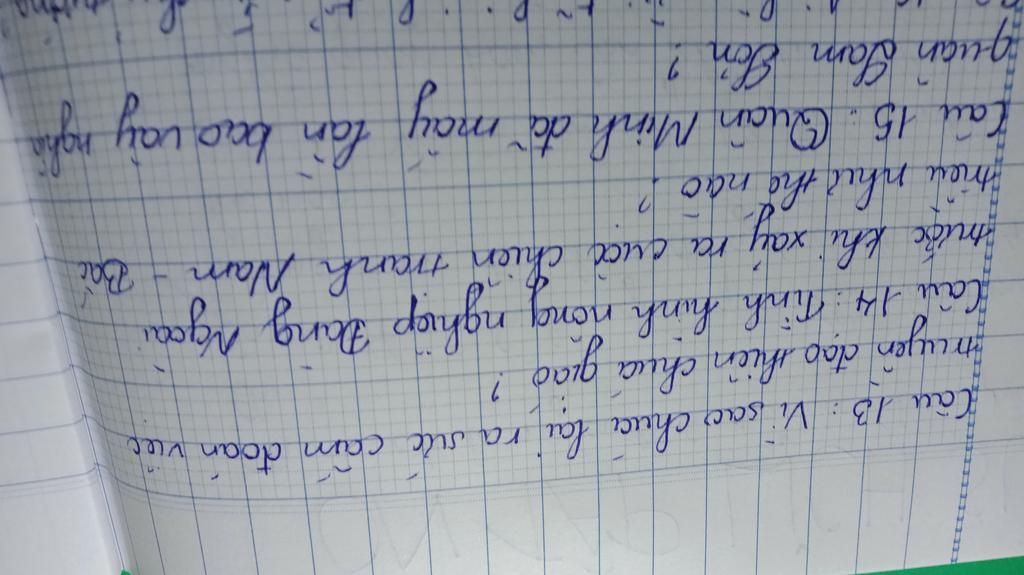 Câu 13: Vì sao chúa lại ra sức cấm đoán việc
truyền đạo thiên chúa giáo?
Câu 14: Tình hình nông nghiệp Đàng Ngoài
trước khi xảy ra cuộc chiến tranh Nam - Bắc
triều như thế nào?
Câu 15: Quân Minh đã mấy lần bao vây nghĩa
quân Lam Sơn?